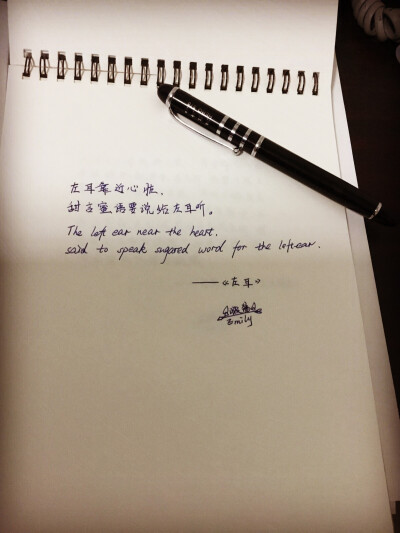 左耳靠近心脏，
甜言蜜语要说给左耳听。
The left ear near the heart.
said to speak sugared word for the left ear.
——《左耳》
Emily